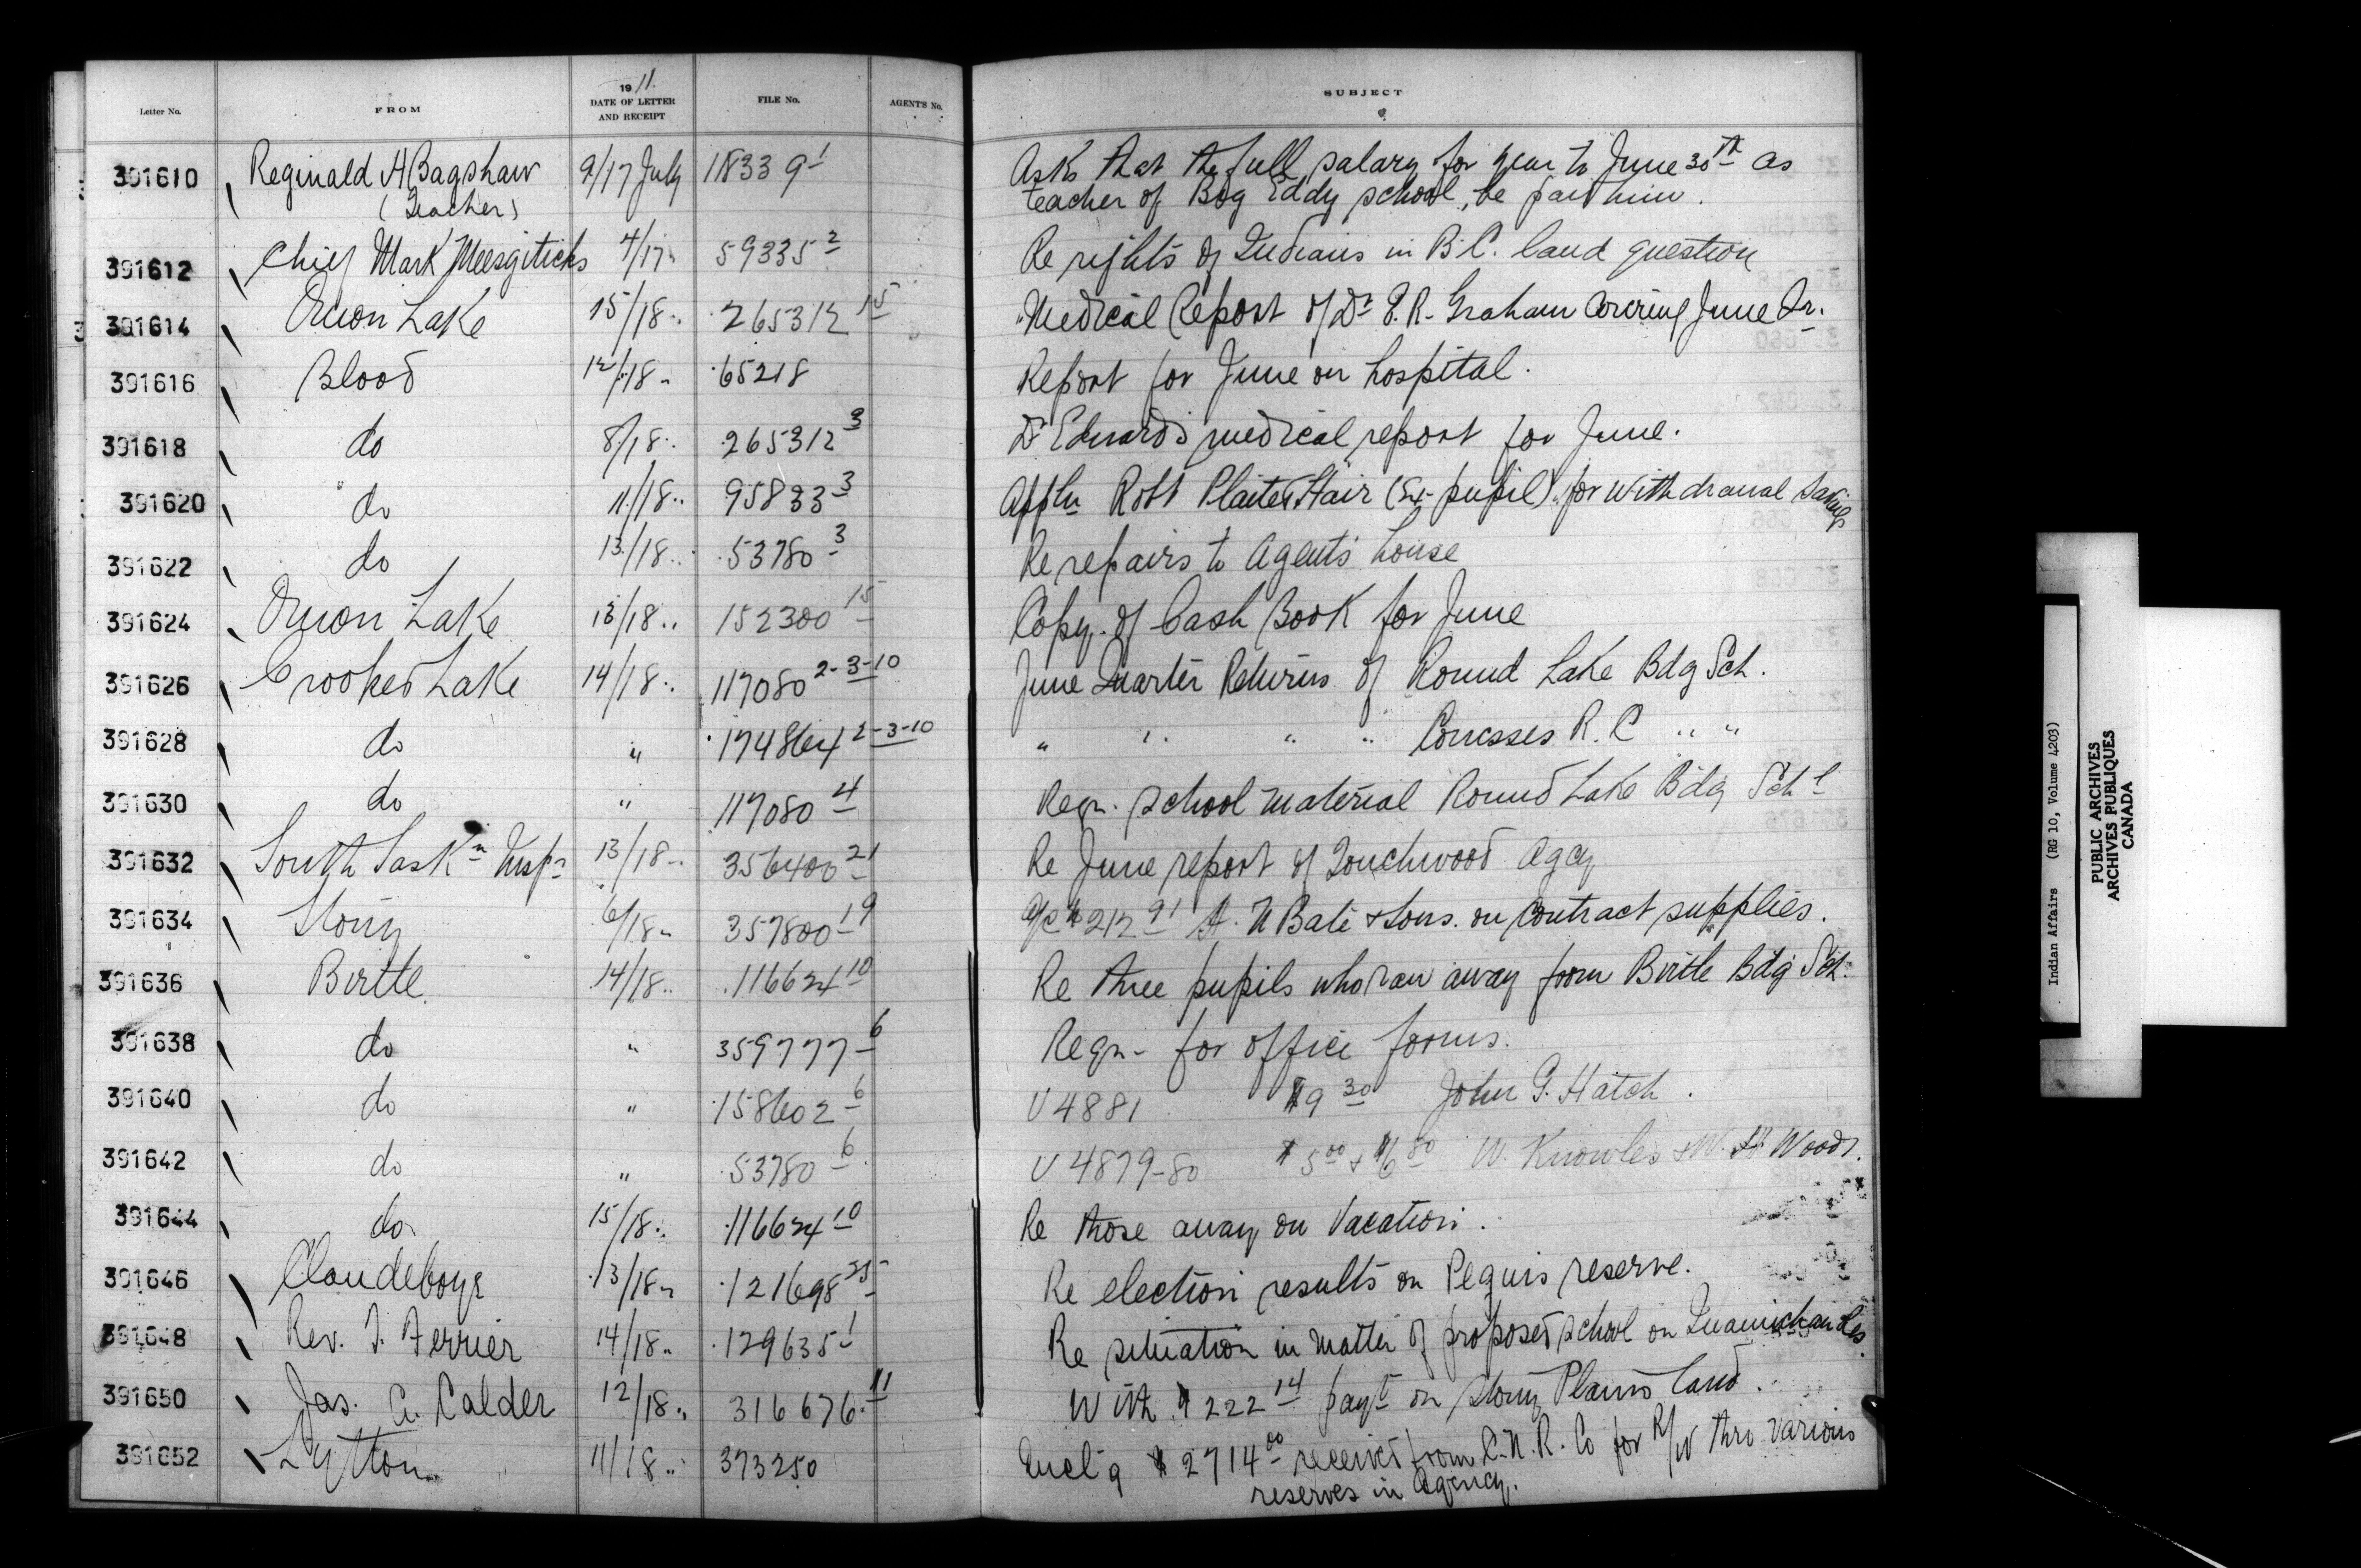 1911.
Letter No. FROM DATE OF LETTER AND RECEIPT FILE No. AGENT'S No. SUBJECT
391610 Reginald A Bagshaw 9/17 July 118339-1 Asks that the full salary for year to June 30th as
(Teacher) teacher of Big Eddy school, be paid him.
391612 Chief Mark 4/17 " 59335-2 Re rights of Indians in B.C. land question
391614 Onion Lake 15/18 .. 265312-15 Medical Report of Dr E.R. Graham covering June Qr.
391616 Blood 12/18 " 65218 Report for June on hospital.
391618 do 8/18 .. 265312-3 Dr Edwards medical report for June.
391620 do 11/18 .. 95833-3 Appln Robt Plaited Hair (Ex-pupil) for withdrawal savings
391622 do 13/18 .. 53780-3 Re repairs to Agents house
391624 Onion Lake 13/18 .. 152300-15 Copy of Cash Book for June
391626 Crooked Lake 14/18 .. 117080 2-3-10 June Quarter Returns of Round Lake Bdg Sch.
391628 do " 174864 2-3-10 " " " " Cowesses R.C " "
391630 do " 117080-4 Reqn. school material Round Lake Bdg Schl
391632 South Sask'n Insp'r 13/18 .. 356400-21 Re June report of Touchwood Agcy
391634 Stony 6/18 " 357800-19 a/c $212.91 H. N Bate & Sons. on contract supplies.
391636 Birtle 14/18 .. 116624-10 Re three pupils who ran away from Birtle Bdg Sch.
391638 do " 359777-6 Reqn- for office forms.
391640 do " 158602-6 V 4881 $9.30 John G. Hatch.
391642 do " 53780-6 V 4879-80 $5.00 & $6.80 W. Knowles & W. Woods.
391644 do 15/18 .. 116624-10 Re those away on vacation.
391646 Clandeboye 13/18 " 121698-25 Re election results on Peguis reserve.
391648 Rev. T. Ferrier 14/18 .. 129635-1 Re situation in matter of proposed school on Quamichan Res.
391650 Jas. A. Calder 12/18 .. 316676-11 With $222.14 payt on Stony Plains land.
391652 Lytton 11/18 .. 373250 Encl'g $2714.00 received from C.N.R. Co for R/W thro various
reserves in Agency.
Indian Affairs (RG 10, Volume 4203)
PUBLIC ARCHIVES
ARCHIVES PUBLIQUES
CANADA